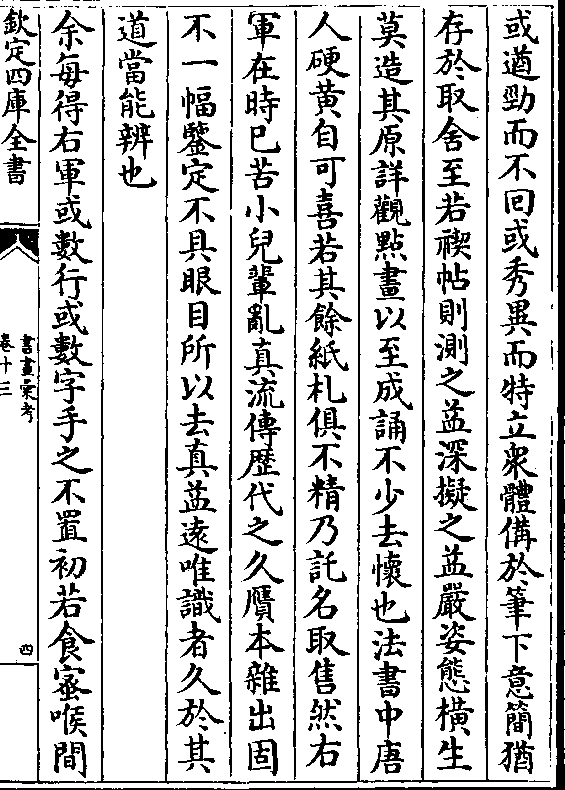 或遒勁而不回或秀異而特立衆體備於筆下意簡猶
存於取舍至若禊帖則測之益深擬之益嚴姿態橫生
莫造其原詳觀點畫以至成誦不少去懷也法書中唐
人硬黄自可喜若其餘紙札俱不精乃託名取售然右
軍在時已苦小兒輩亂真流傳歴代之久贋本雜出固
不一幅鑒定不具眼目所以去真益逺唯識者久於其
道當能辨也
余每得右軍或數行或數字手之不置初若食蜜喉間
欽定四庫全書
書畫彙考
卷十三
四